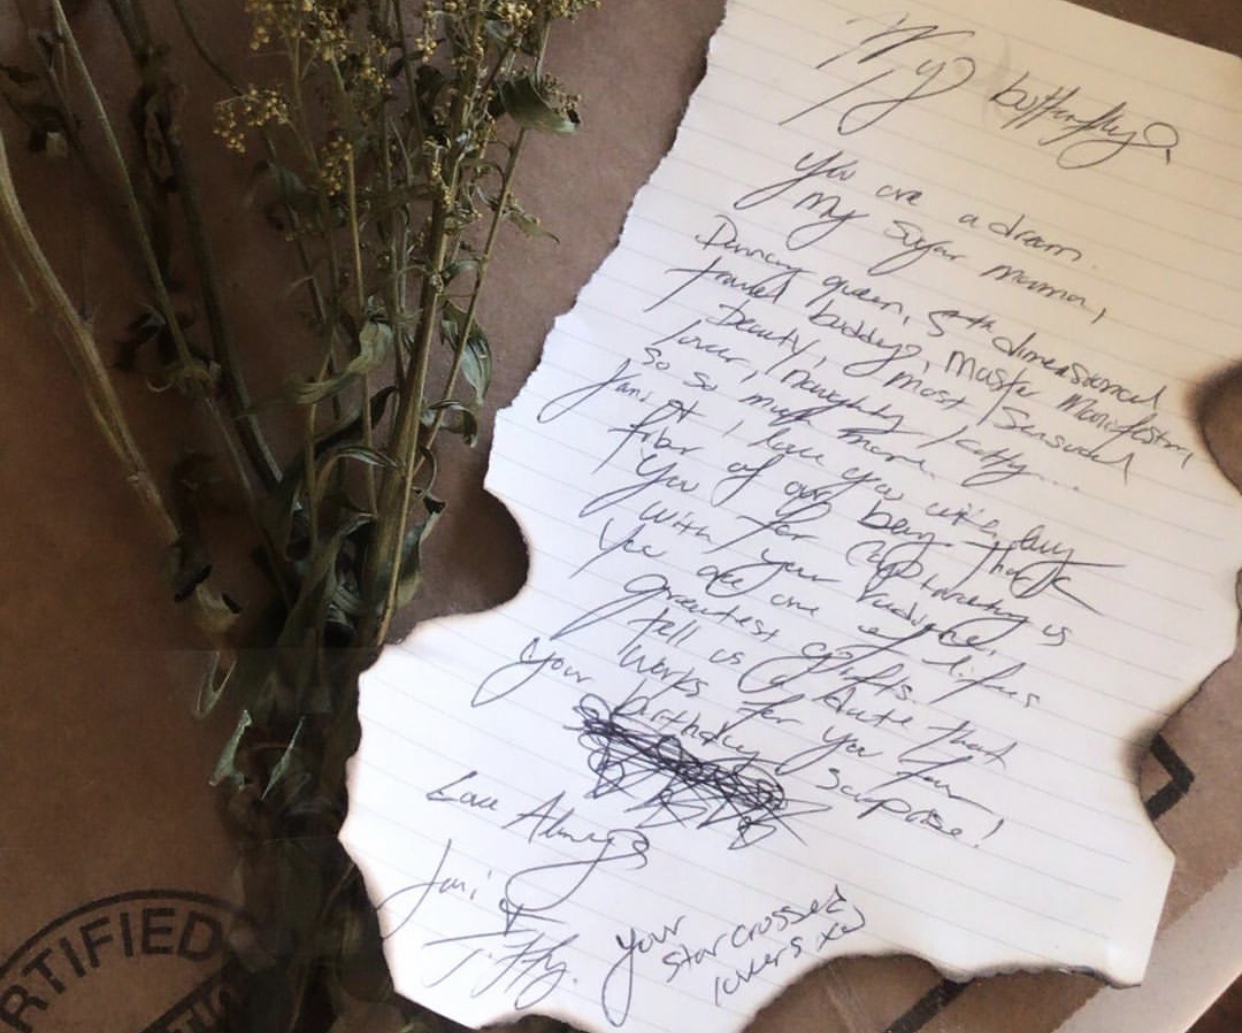 My butterfly,
You are a dream.
My sugar mama,
Dancing queen, 5th dimensional
travel buddy, Master Manifestor,
Beauty, most Sensual
lover, naughty kitty...
So so much more.
Jani & I love you with every
fiber of our being. Thank
You for capturing us
with your radiance.
You are one of lifes
greatest gifts.
tell us a date that
works for you for
your birthday surprise!
Love Always
Jani &
Tiffy.
Your
star crossed
lovers xo
RTIFIED